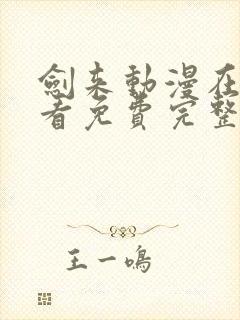 劍来動漫在
看免費完整
王一鳴